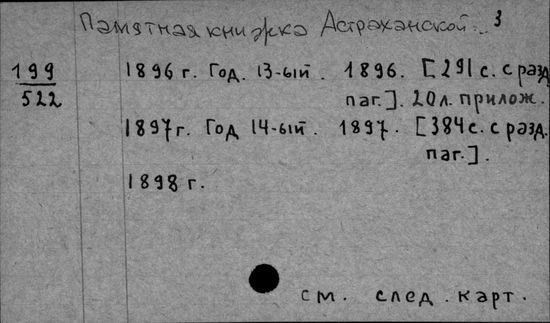 Памятная книжка Астраханской... 3
199
522
1896 г. Год. 13-ый. 1896. [291 с. с разд.
паг.]. 20 л. прилож.
1897 г. Год 14-ый. 1897. [384 с. с разд.
паг.].
1898 г.
см. след. карт.